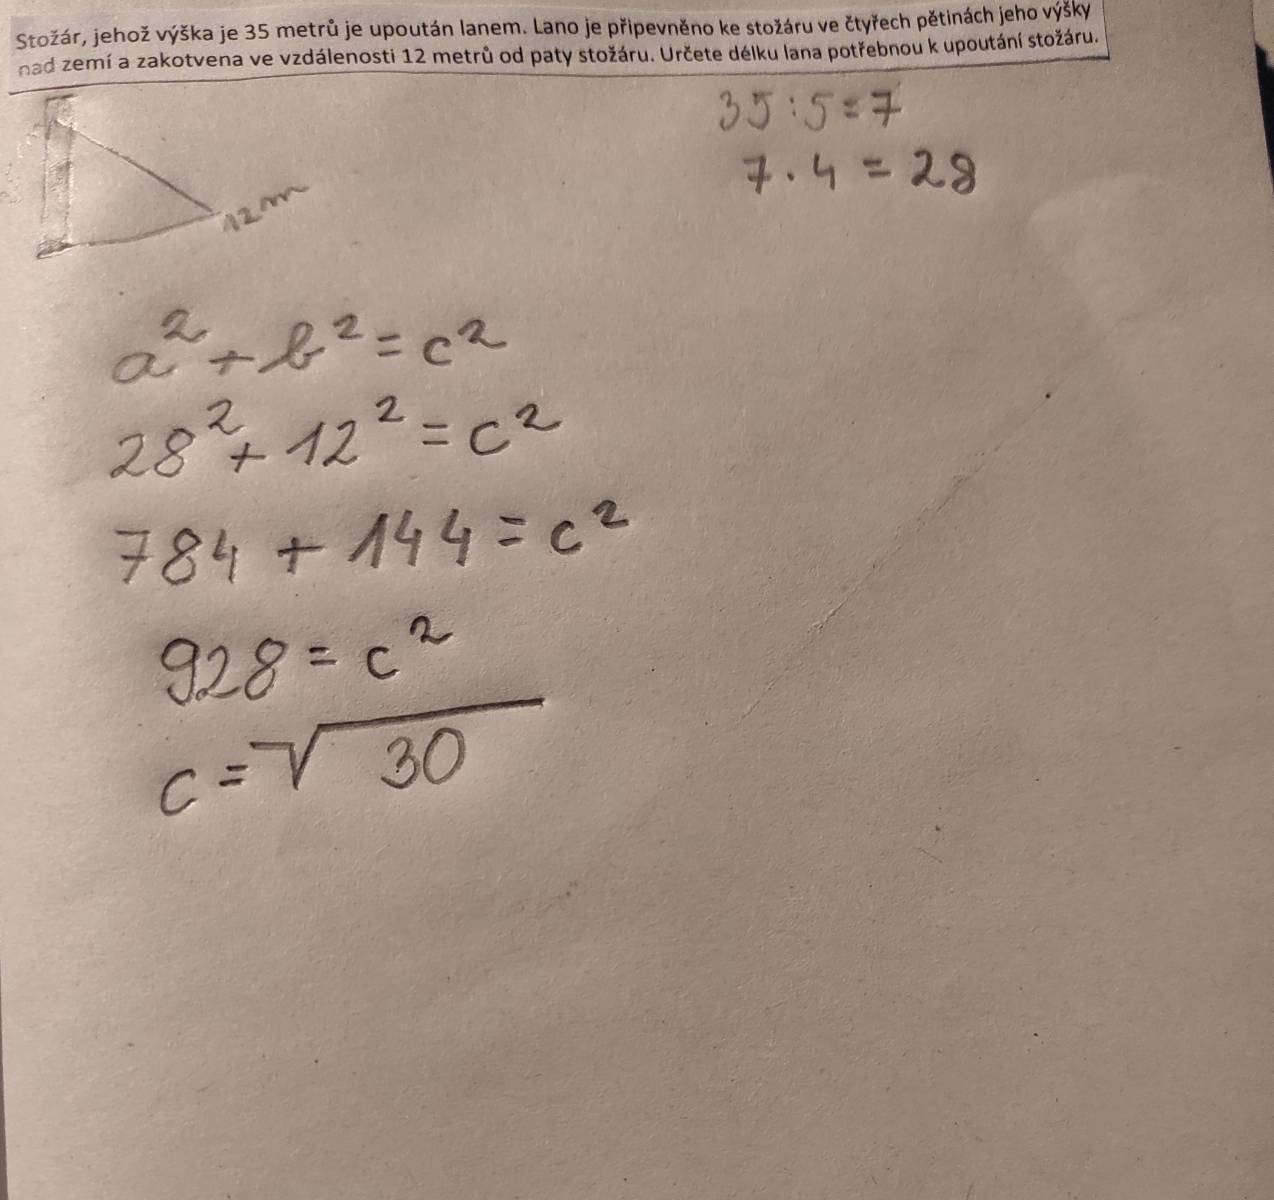 Stožár, jehož výška je 35 metrů je upoután lanem. Lano je připevněno ke stožáru ve čtyřech pětinách jeho výšky
nad zemí a zakotvena ve vzdálenosti 12 metrů od paty stožáru. Určete délku lana potřebnou k upoutání stožáru.
35 : 5 = 7
7 . 4 = 28
12 m
a² + b² = c²
28² + 12² = c²
784 + 144 = c²
928 = c²
c = √30